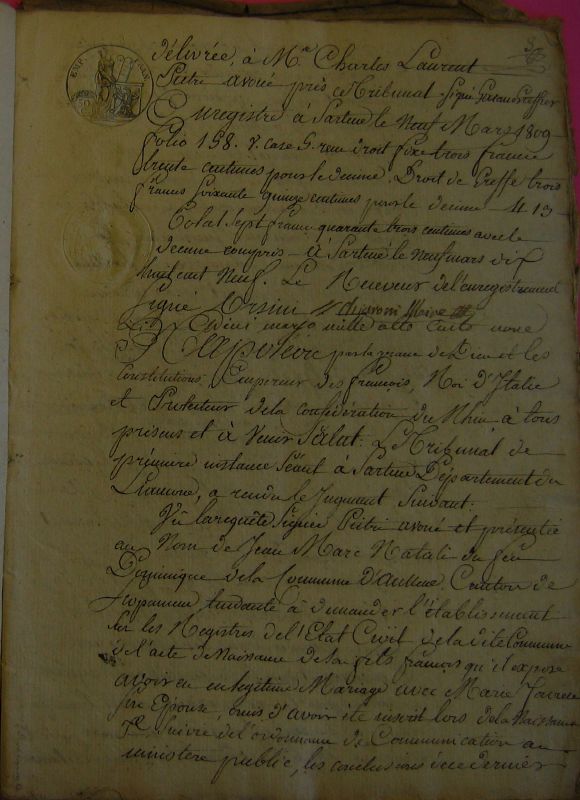 délivrée, à Mre. Charles Laurent
Pietri avoué près ce Tribunal. Signé greffier
Enregistré à Sartene le Neuf Mars 1809
folio 158. v. case 5. reçu droit fixe trois francs
trente centimes pour le decime. Droit de Greffe trois
francs soixante quinze centimes pour le decime 4 13
Total Sept francs quarante trois centimes avec le
decime compris. à Sartene le Neuf mars dix
huit cent Neuf. Le Receveur de l'enregistrement
Signé Orsini Maire
Adieci marzo mille otto cento nove
Napoléon par la grace de Dieu et les
Constitutions, Empereur des français, Roi d'Italie
et Protecteur de la confédération du Rhin à tous
présens et à Venir Salut: Le Tribunal de
prémiere instance Séant à Sartene Département du
Liamone, a rendu le Jugement Suivant:
Vu la requête Signée Pietri avoué et présentée
au Nom de Jean Marc Natali du feu
Dominique de la Commune d'Aullene Canton de
Scopamene tendante à demander l'établissement
sur les Registres de l'Etat Civil de la dite Commune
de l'acte de Naissance de son fils françois qu'il expose
avoir eu en legitime Mariage avec Marie
son Epouse, omis d'avoir été inscrit lors de la Naissance
Suivie de l'ordonnance de Communication au
ministere public, les conclusions de ce dernier